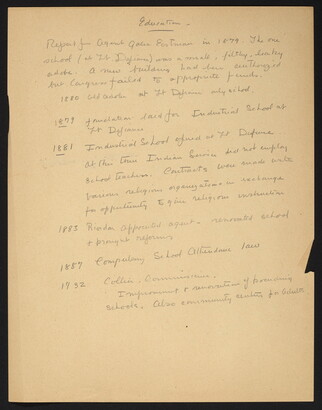 Education -
Report for Agent Galen Eastman in 1879. The one
school (at Ft Defiance) was a small, filthy,
adobe. A new building had been authorized
but Congress failed to appropriate funds.
1880 at Ft Defiance only school
1879 foundation laid for Industrial School at
Ft Defiance
1881 Industrial School opened at Ft Defiance
At this time Indian Service did not employ
school teachers. Contracts were made with
various religious organizations in exchange
for opportunity to give religious instruction
1883 Riordan appointed agent - renovated school
& brought reforms
1887 Compulsory School Attendance law
1932 Collier, Commissioner.
Improvement & renovation of boarding
schools. Also community centers for adults